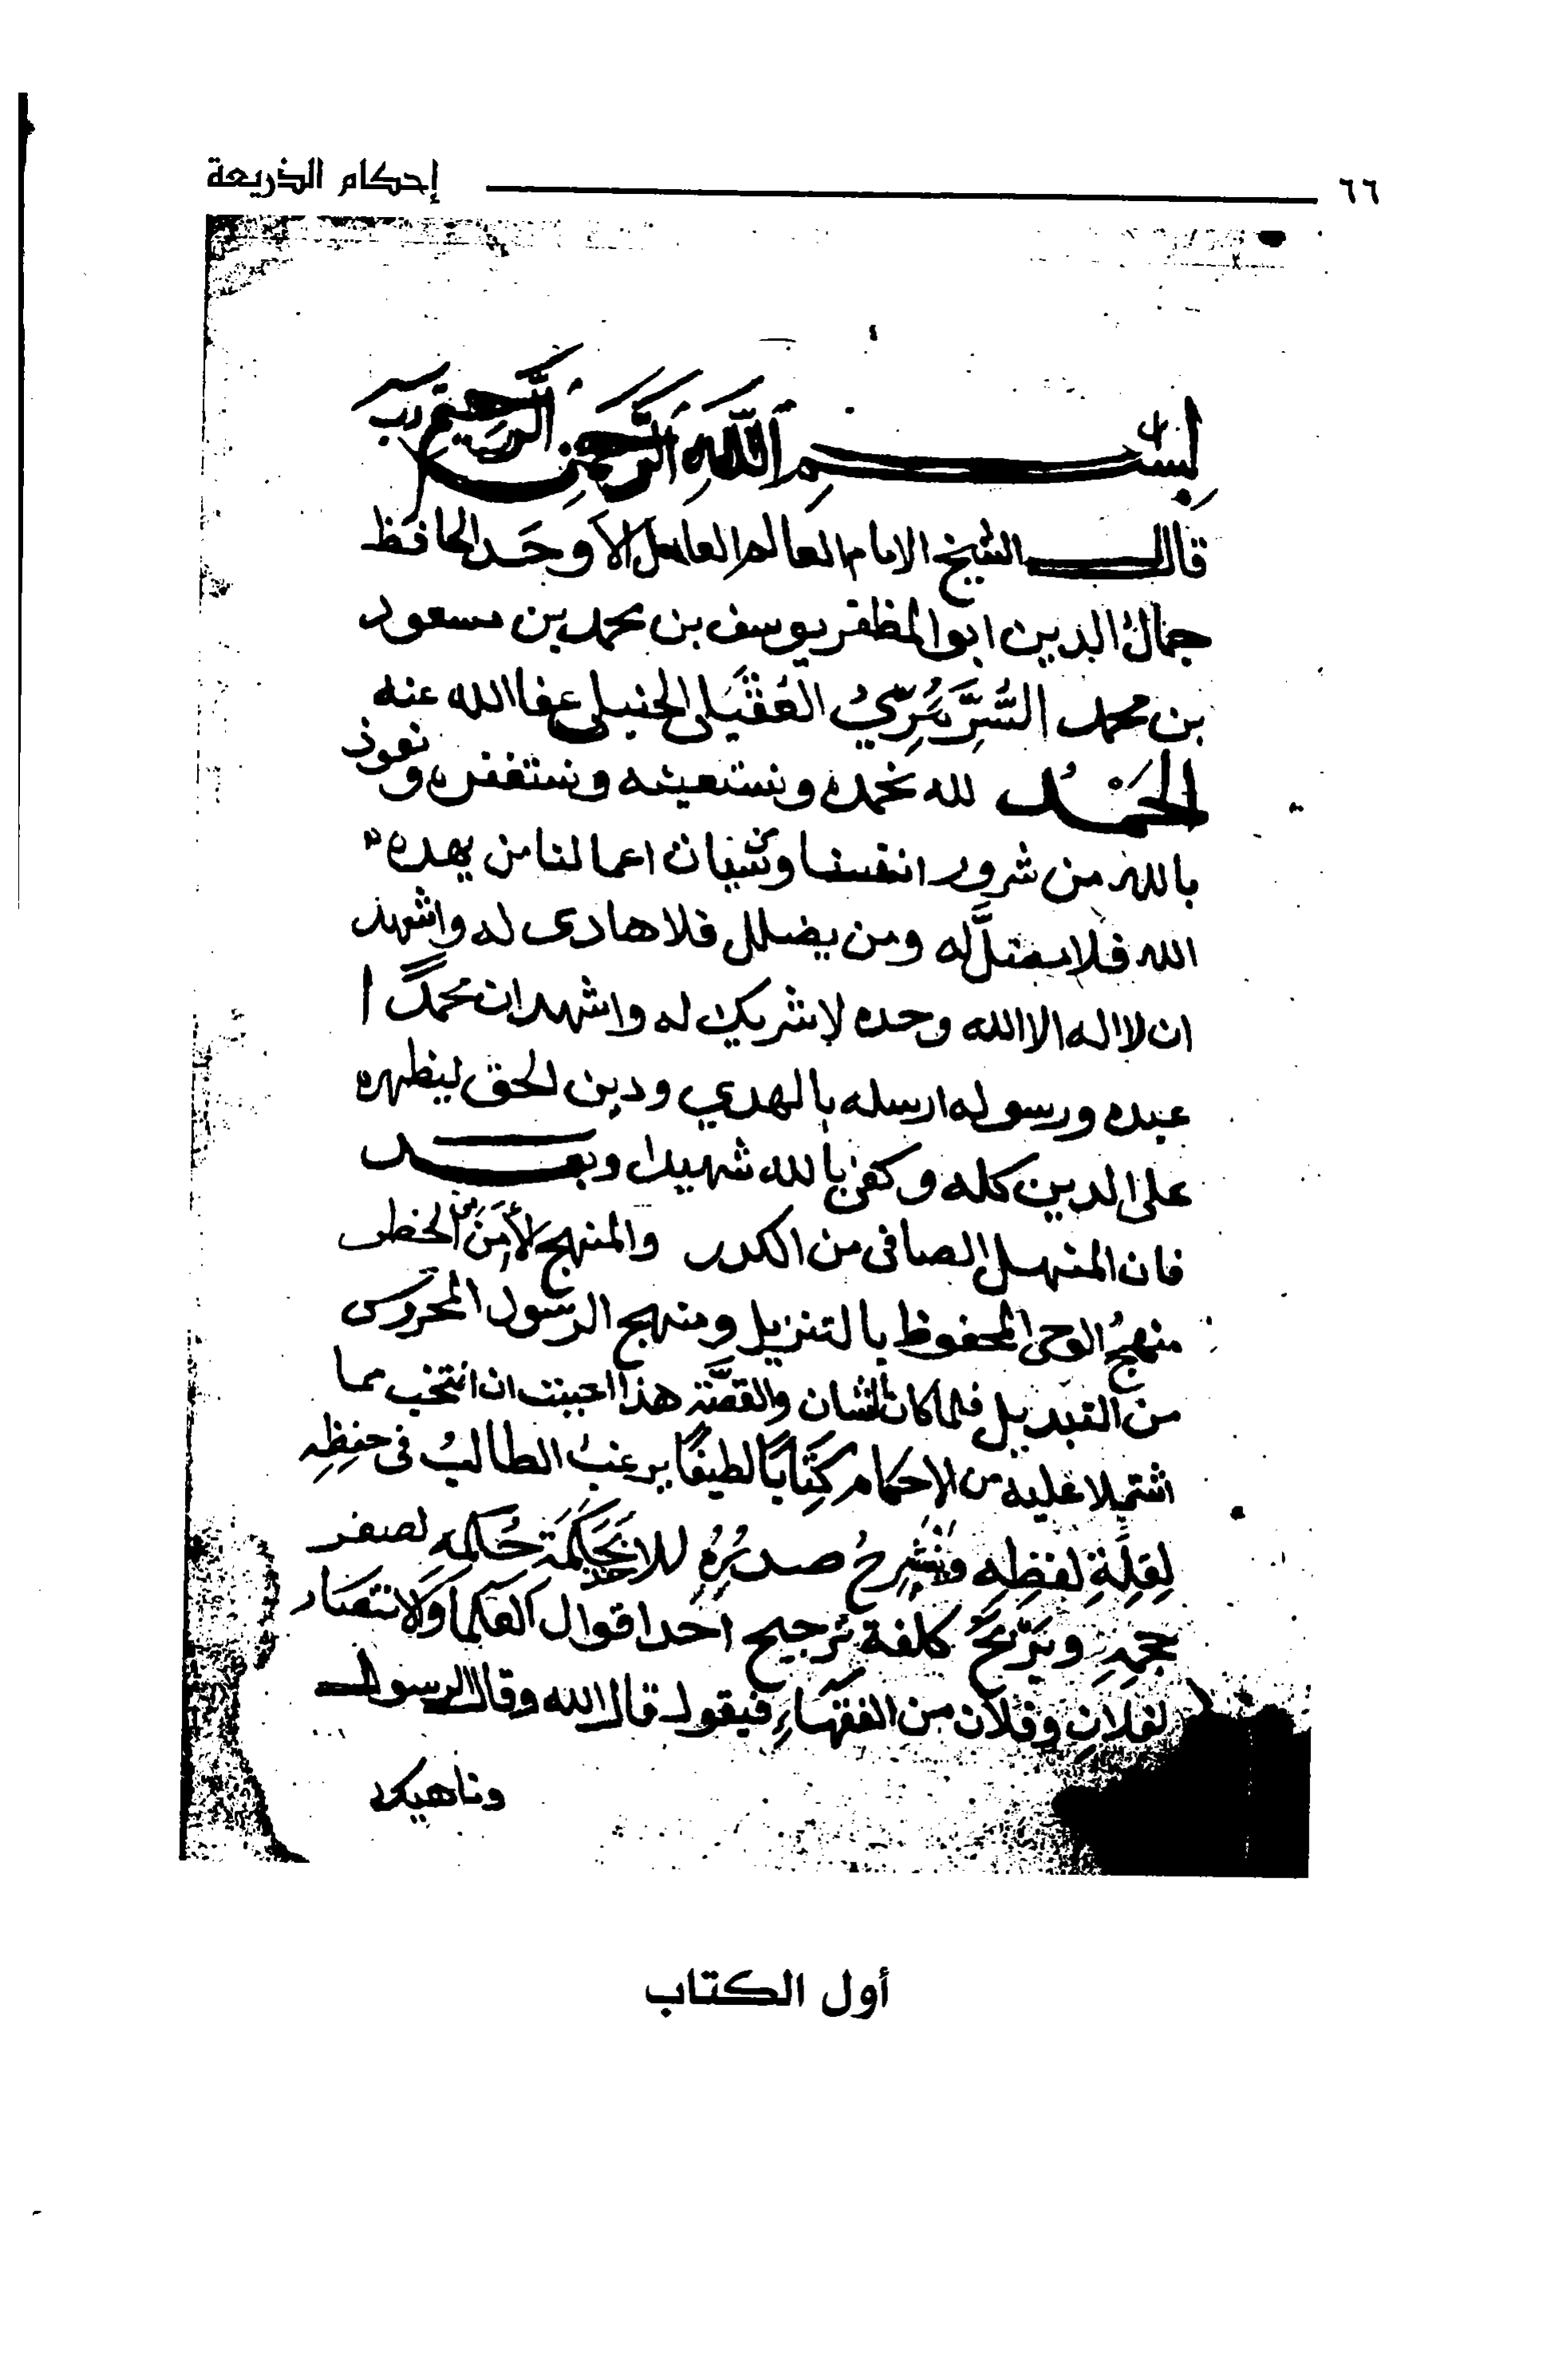 ٦٦ إحكام الذريعة
بِسْمِ اللَّهِ الرَّحْمَنِ الرَّحِيمِ رب
قال الشيخ الامام العالم العامل الأوحد الحافظ
جمال الدين ابو المظفر يوسف بن محمد بن مسعود
بن محمد السُّرَّمَرِّيُّ العُقَيلى الحنبلى عفا الله عنه
الحمد لله نحمده ونستعينه ونستغفره ونعوذ
بالله من شرور انفسنا وسيات اعمالنا من يهده
الله فلا مضلَّ له ومن يضلل فلا هادى له واشهد
ان لا اله الا الله وحده لا شريك له واشهد ان محمدًا
عبده ورسوله ارسله بالهدي ودين الحق ليظهره
على الدين كله وكفى بالله شهيدا وبعد
فان المنهل الصافى من الكدر والمنهج الأمن من الخطر
منهج الوحى المحفوظ بالتنزيل ومنهج الرسول المحروس
من التبديل فلما كان الشان والقصَّة هذا احببت ان انتخب مما
اشتملا عليه من الاحكام كتابًا لطيفًا يرغبُ الطالبُ فى حفظِهِ
لِقِلَّةِ لفظِهِ ويَنشَرِحُ صدرُهُ للا حُكمِهِ لصغر
حجمِهِ كلفة ترجيح احد اقوال العلما والانتصار
لفلانٍ وفلان من الفقهاءِ فيقول قال الله وقال الرسول
وناهيك
أول الكتاب